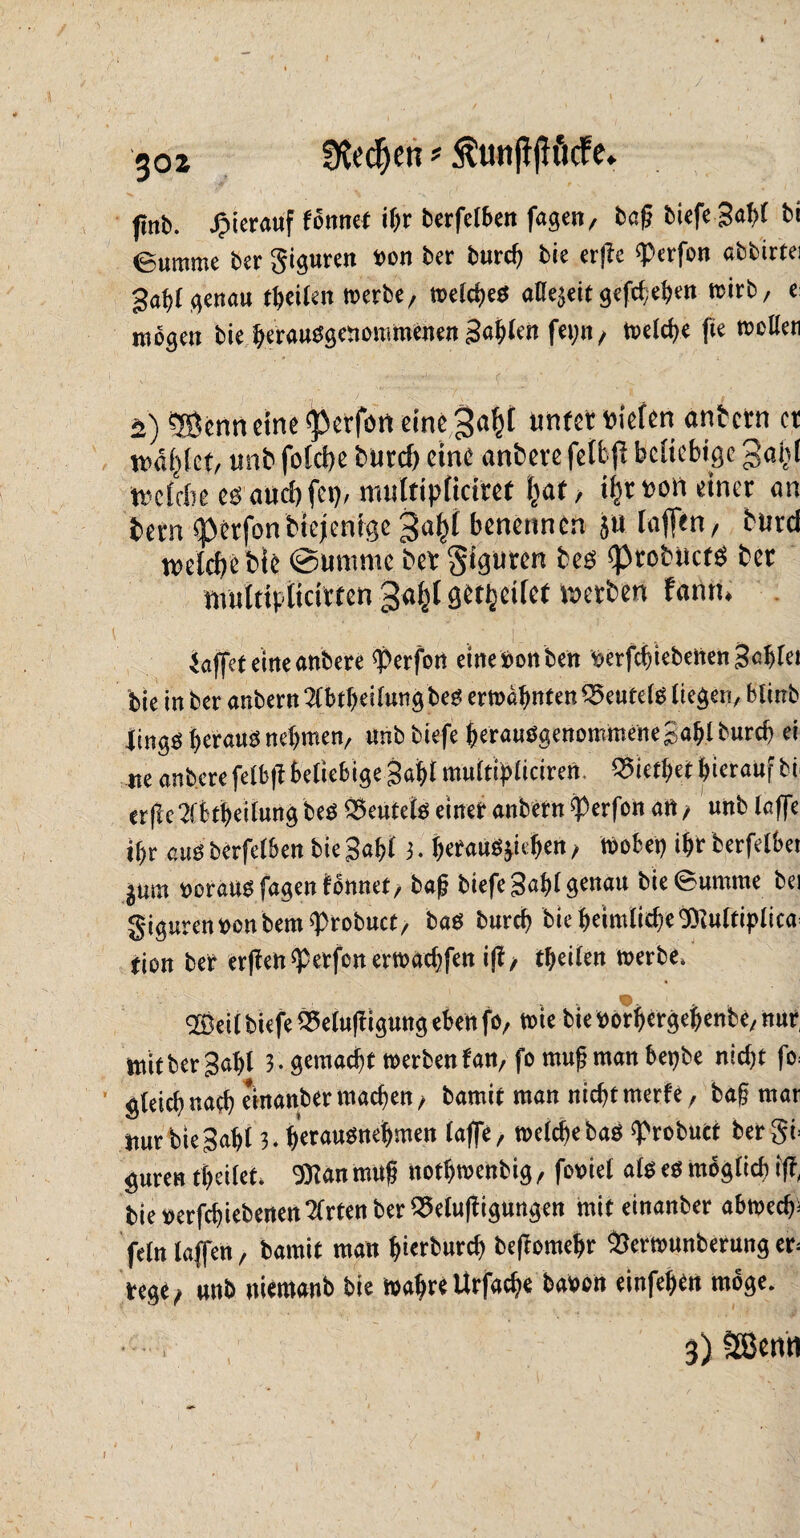 302 Rechen-Kunststücke.
sind. Hierauf könnet ihr derselben sagen, daß diese Zahl di
Summe der Figuren von der durch die erste Person addirte
Zahl genau theilen werde, welches allezeit geschehen wird, e
mögen die herausgenommenen Zahlen seyn, welche sie wollen
2) Wenn eine Person eine Zahl unter vielen andern er
wählet, und solche durch eine andere selbst beliebige Zahl
welche es auch sey, multipliciret hat, ihr von einer an
dern Person diejenige Zahl benennen zu lassen, durch
welche die Summe der Figuren des Products der
multiplicirten Zahl getheilet werden kann.
Lasset eine andere Person eine von den verschiedenen Zahle
die in der andern Abtheilung des erwähnten Beutels liegen, blind
lings heraus nehmen, und diese herausgenommene Zahl durch ei
ne andere selbst beliebige Zahl multipliciren. Biethet hierauf di
erste Abtheilung des Beutels einer andern Person an, und lasse
ihr aus derselben die Zahl 3. herausziehen, wobey ihr derselbe
zum voraus sagen könnet, daß diese Zahl genau die Summe de
Figuren von dem Product, das durch die heimliche Multiplica
tion der ersten Person erwachsen ist, theilen werde.
Weil diese Belustigung eben so, wie die vorhergehende, nur
mit der Zahl 3. gemacht werden kan, so muß man beyde nicht so
gleich nach einander machen, damit man nicht merke, daß man
nur die Zahl 3. herausnehmen lasse, welche das Product der Fi
guren theilet. Man muß nothwendig, soviel als es möglich ist,
die verschiedenen Arten der Belustigungen mit einander abwech
seln lassen, damit man hierdurch destomehr Verwunderung er
rege, und niemand die wahre Ursache davon einsehen möge.
3) Wenn